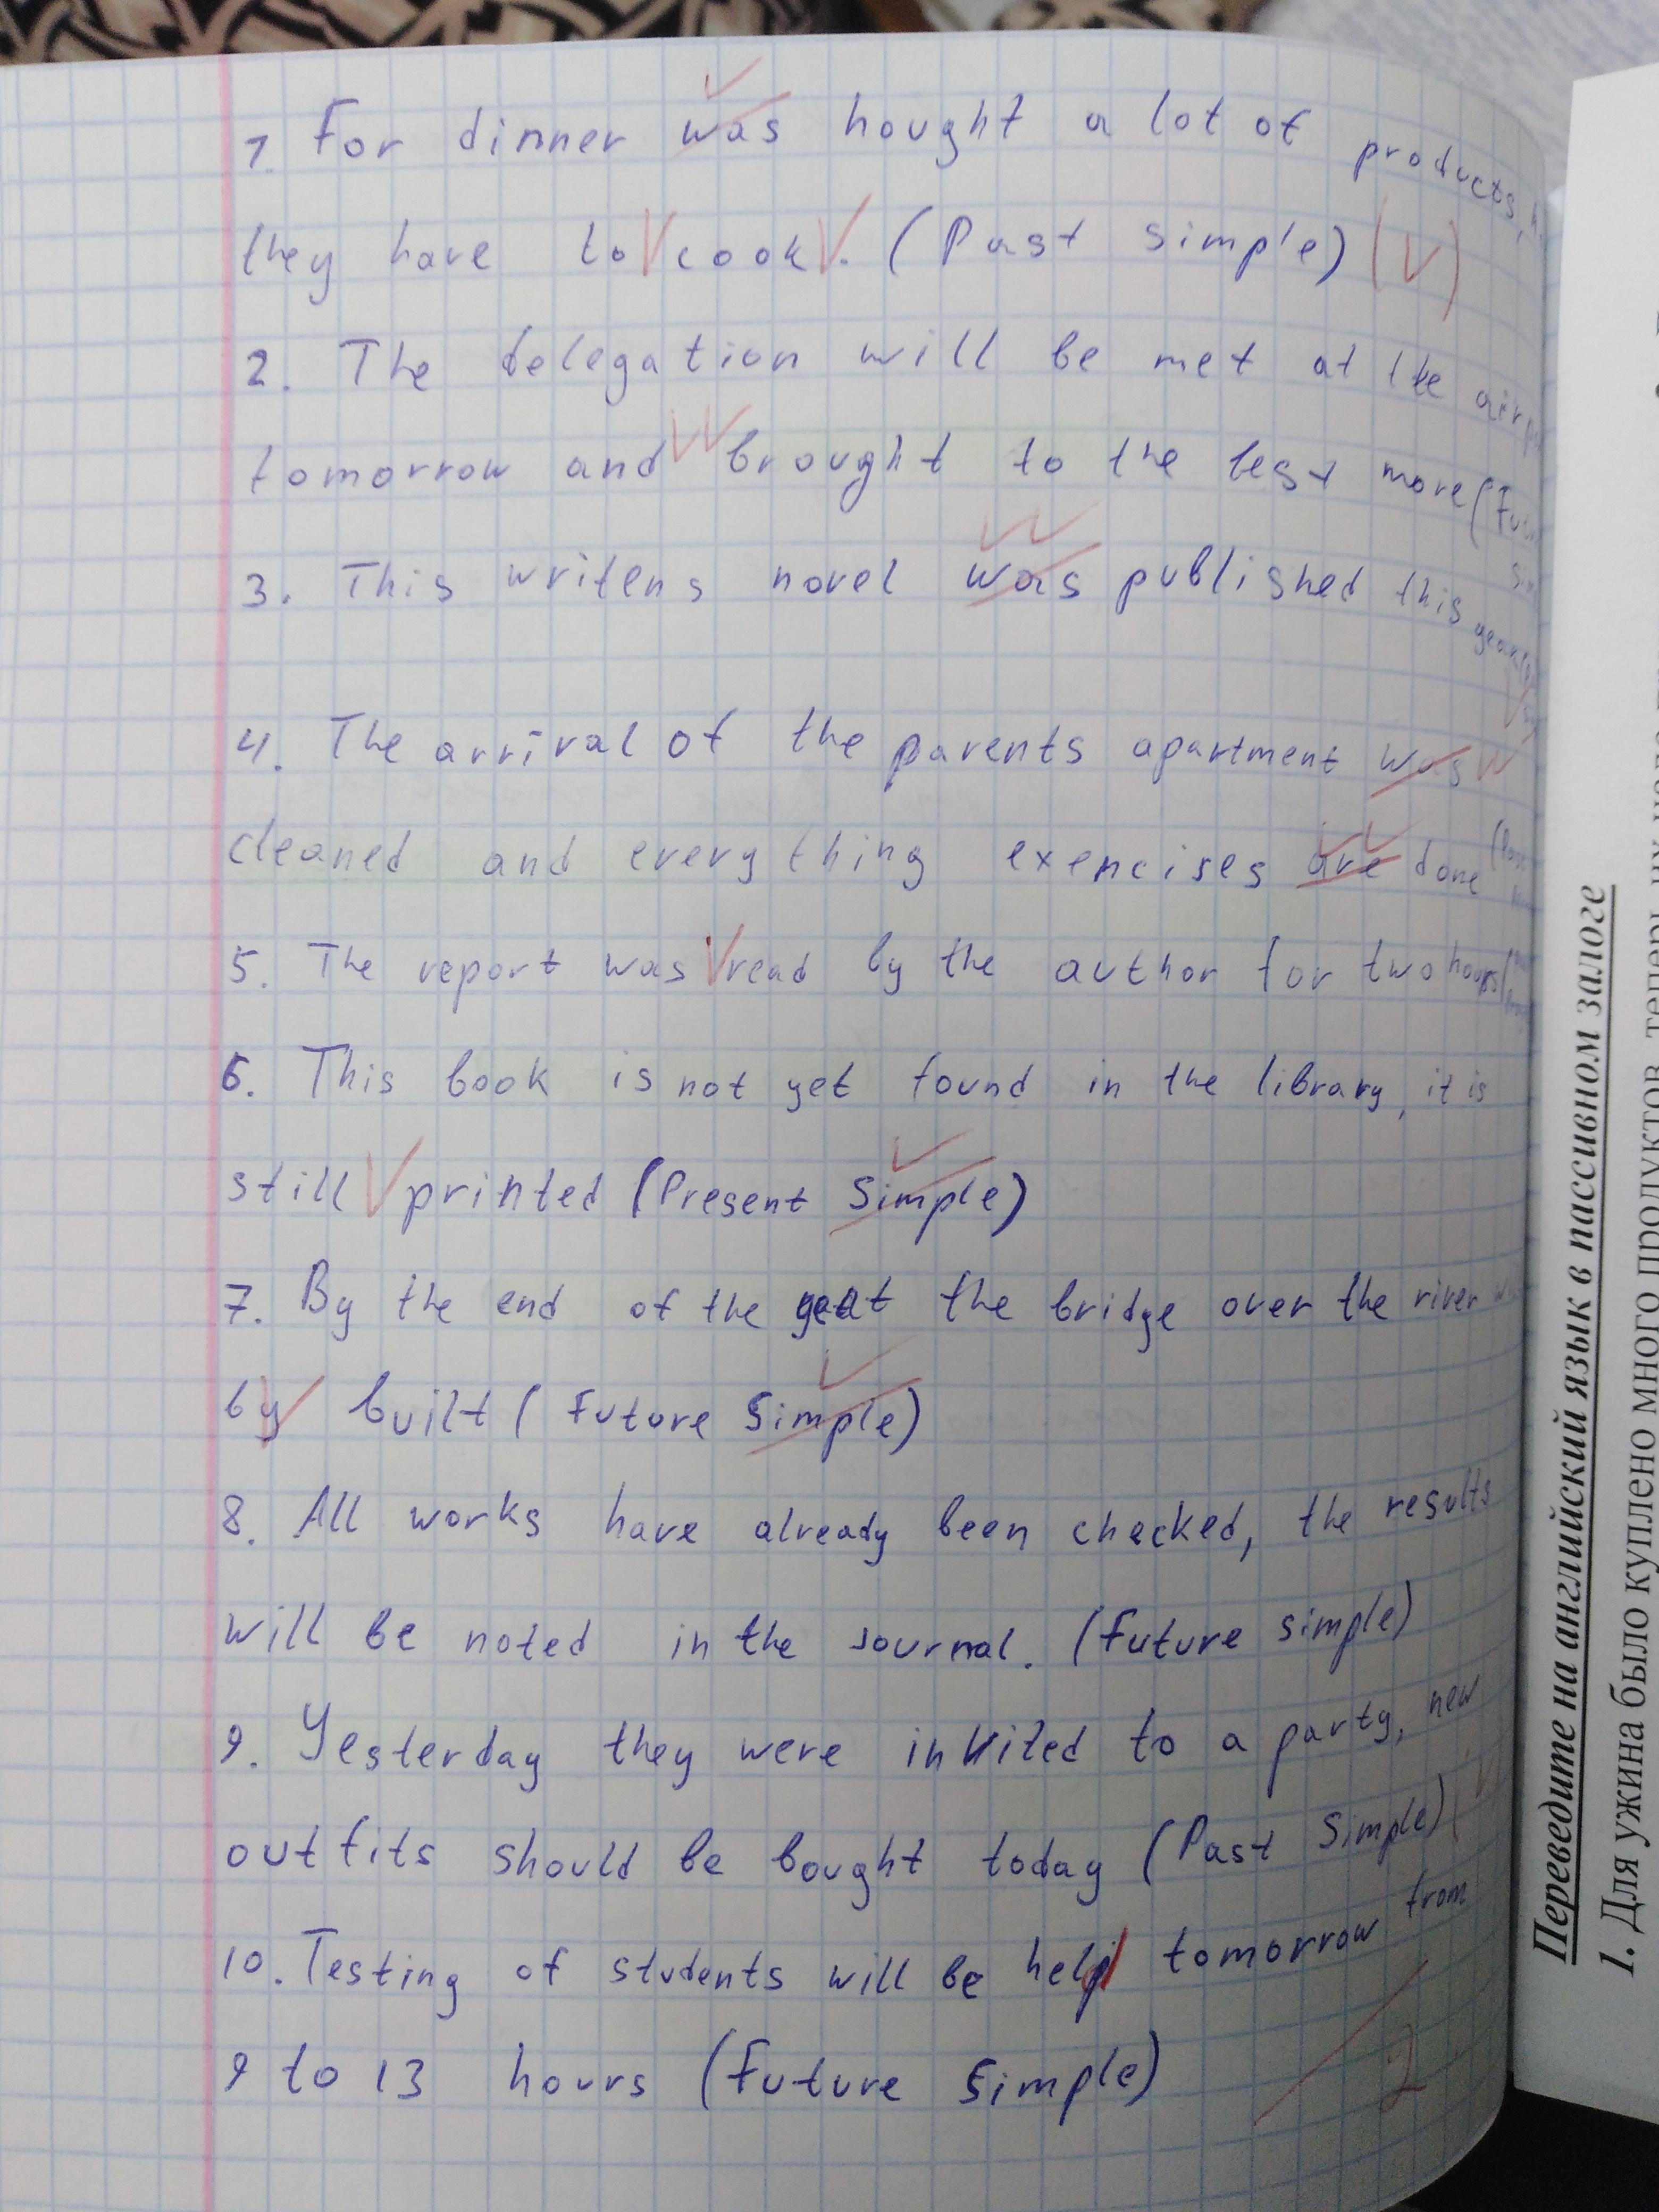 1. For dinner was hought a lot of products,
they have to cook. (Past simple) (V)
2. The delegation will be met at the
tomorrow and brought to the best more (
3. This writens novel was published this year
4. The arrival of the parents apartment was
cleaned and every thing exencises are done
5. The report was read by the author for two hours
6. This book is not yet found in the library, it is
still printed (Present Simple)
7. By the end of the the bridge over the river
by built (Future Simple)
8. All works have already been checked, the results
will be noted in the journal. (Future simple)
9. Yesterday they were invited to a party, new
outfits should be bought today (Past Simple)
10. Testing of students will be help tomorrow from
9 to 13 hours (Future Simple)
2
Переведите на английский язык в пассивном залоге
1. Для ужина было куплено много продуктов, теперь их